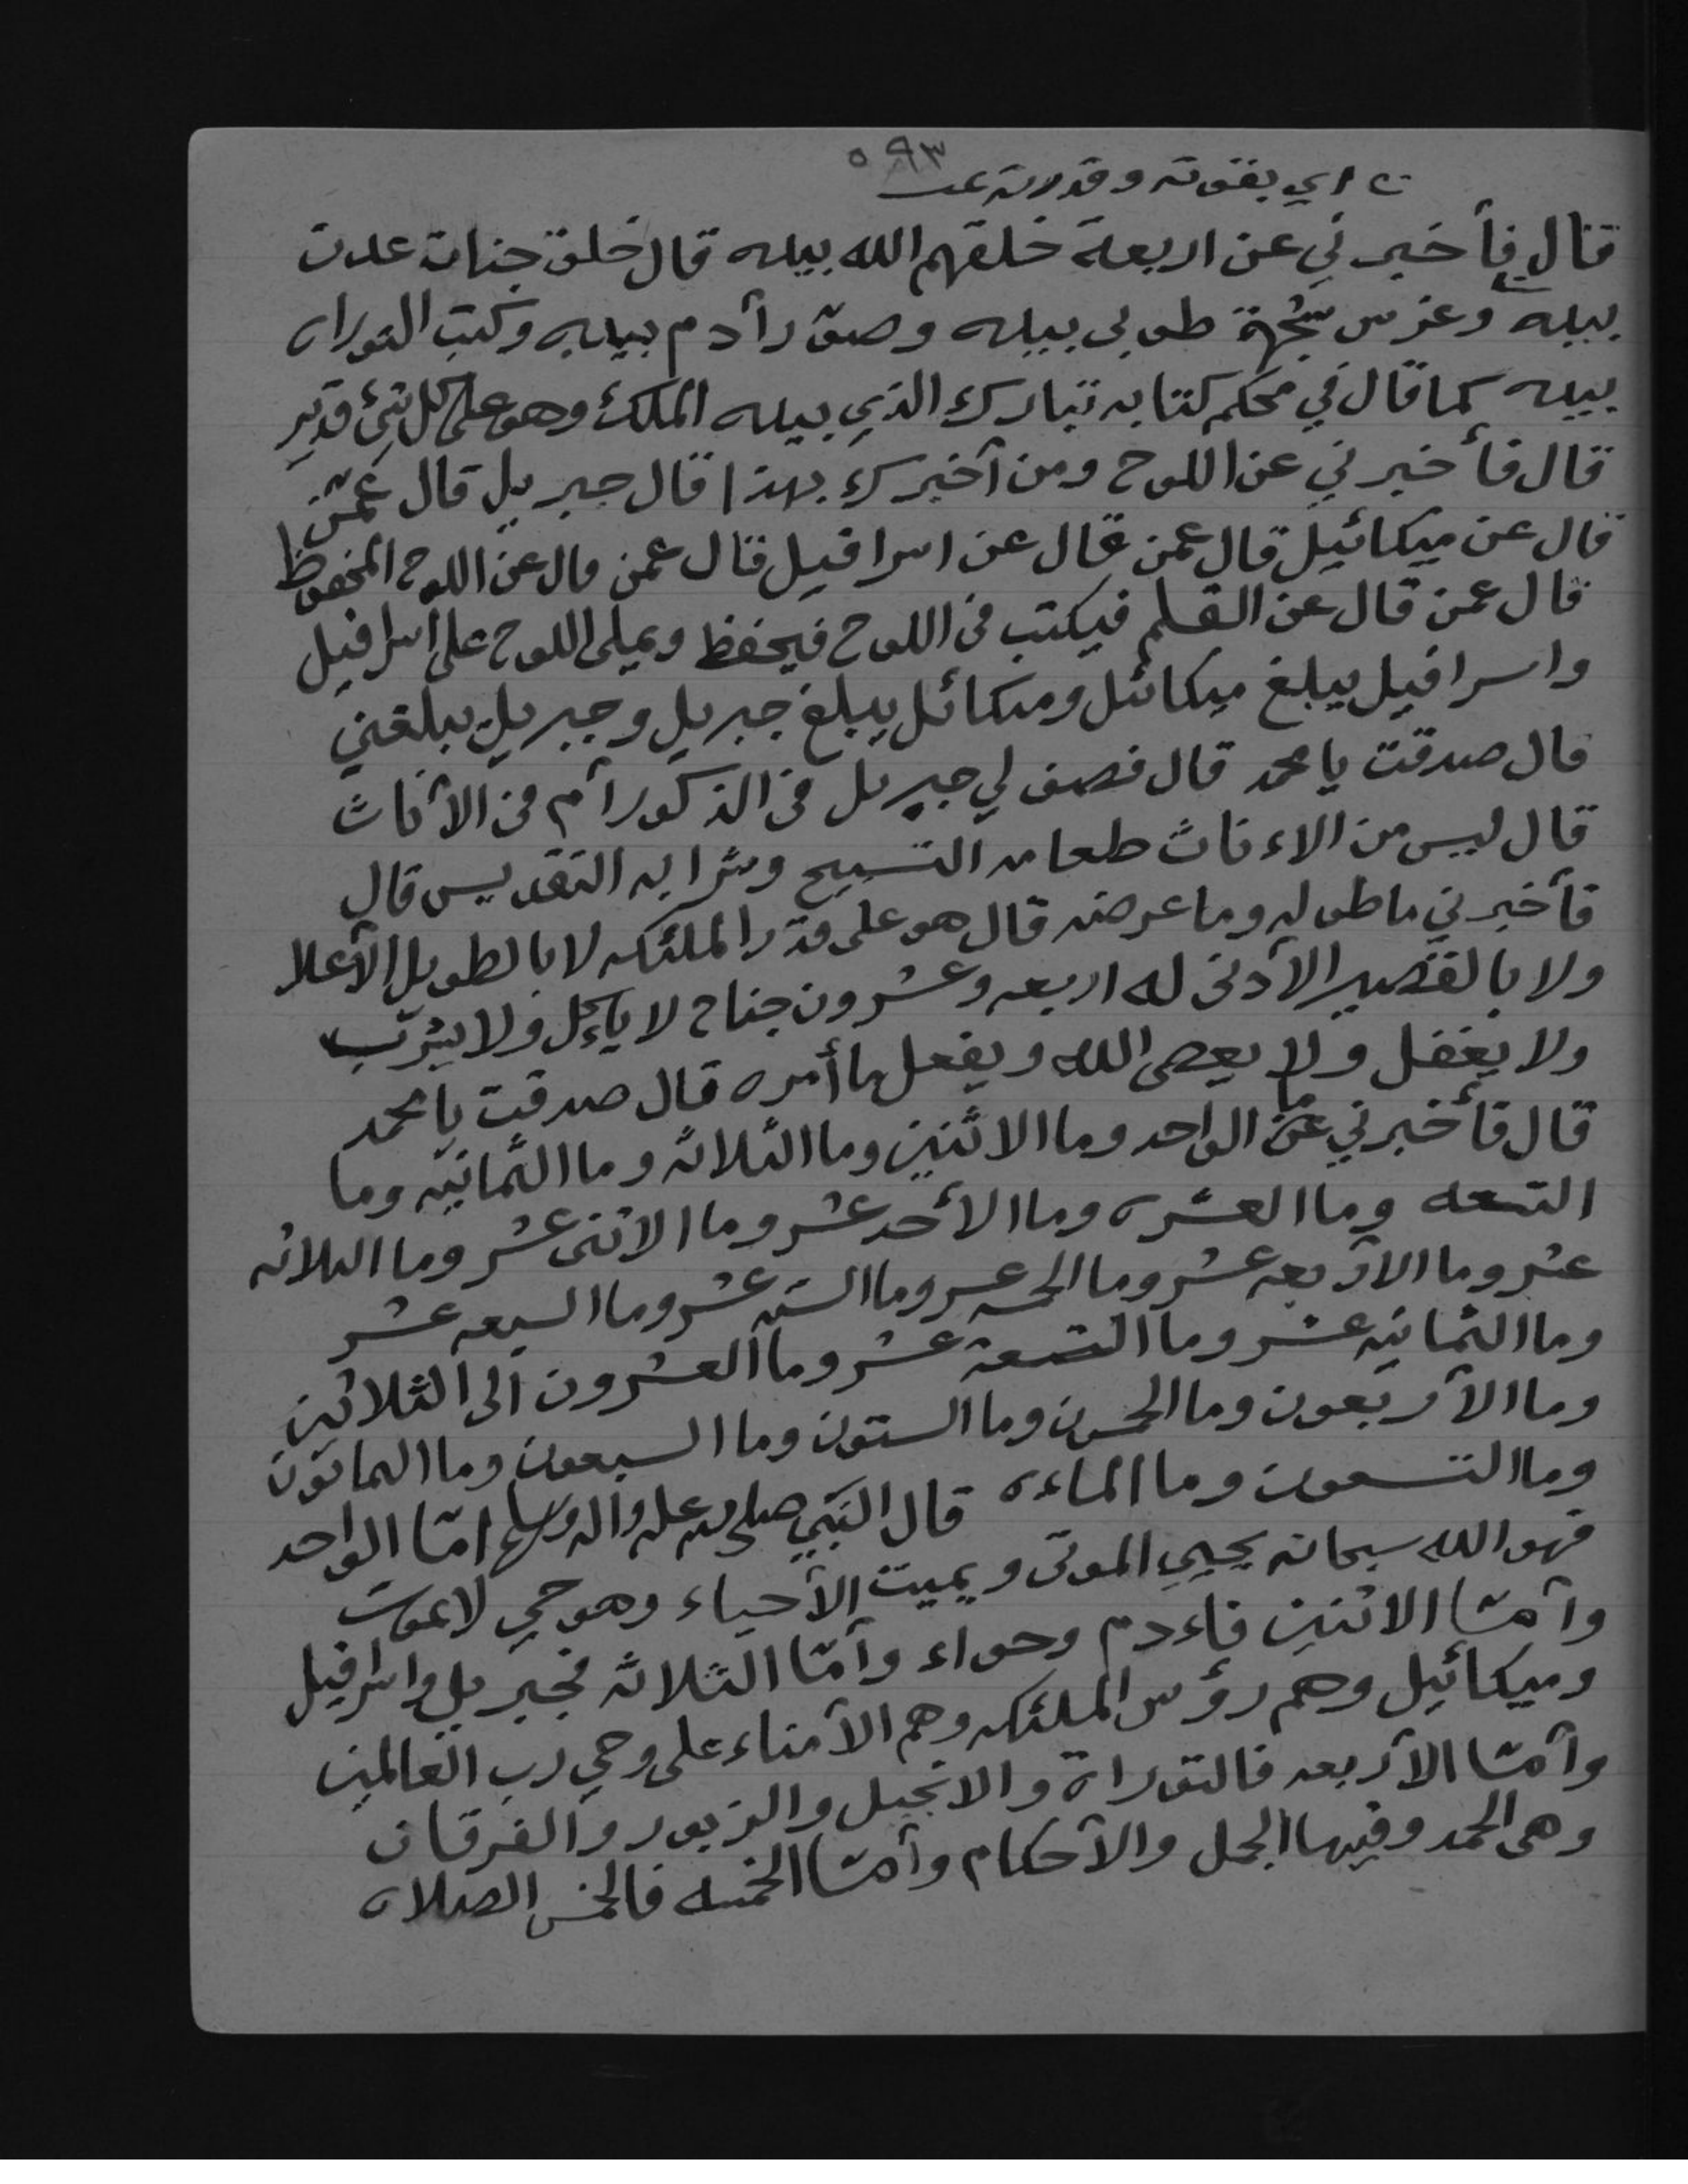 ٥٩٣
اي بقوته وقدرته عـ
قال فأخبرني عن اربعة خلقهم الله بيده قال خلق جنات عدن
بيده وغرس شجرة طوبى بيده وصوّر أدم بيده وكتب التوراه
بيده كما قال في محكم كتابه تبارك الذي بيده الملك وهو على كل شئ قدير
قال فأخبرني عن اللوح ومن أخبرك بهذا قال جبريل قال عمّن
قال عن ميكائيل قال عمن قال عن اسرافيل قال عمن قال عن اللوح المحفوظ
قال عمن قال عن القلم فيكتب في اللوح فيحفظ ويملي اللوح على اسرافيل
واسرافيل يبلغ ميكائل وميكائل يبلغ جبريل وجبريل يبلغني
قال صدقت يا محمد قال فصف لي جبريل من الذكور أم من الأناث
قال ليس من الاءناث طعامه التسبيح وشرابه التقديس قال
فأخبرني ما طوله وما عرضه قال هو على قدر الملئكه لا بالطويل الأعلا
ولا بالقصير الأدنى له اربعه وعشرون جناح لا ياءكل ولا يشرب
ولا يغفل ولا يعصى الله ويفعل ما أمره قال صدقت يا محمد
قال فأخبرني ما الواحد وما الاثنين وما الثلاثه وما الثمانيه وما
التسعه وما العشره وما الأحد عشر وما الاثنى عشر وما الثلاثه
عشر وما الأربعه عشر وما الخمسه عشر وما الستّه عشر وما السبعه عشر
وما الثمانيه عشر وما التسعة عشر وما العشرون الى الثلاثين
وما الأربعون وما الخمسون وما الستون وما السبعون وما الثمانون
وما التسعون وما الماءه قال النبّي صلى الله عليه واله وسلم امّا الواحد
فهو الله سبحانه يحيي الموتى ويميت الأحياء وهو حي لا يموت
وأمّا الاثنين فاءدم وحواء وأمّا الثلاثه فجبريل واسرافيل
وميكائيل وهم رؤس الملئكه وهم الأمناء على وحي رب العالمين
وأمّا الأربعه فالتوراة والانجيل والزبور والفرقان
وهى الحمد وفيها الجمل والأحكام وأمّا الخمسه فالخمس الصلاه